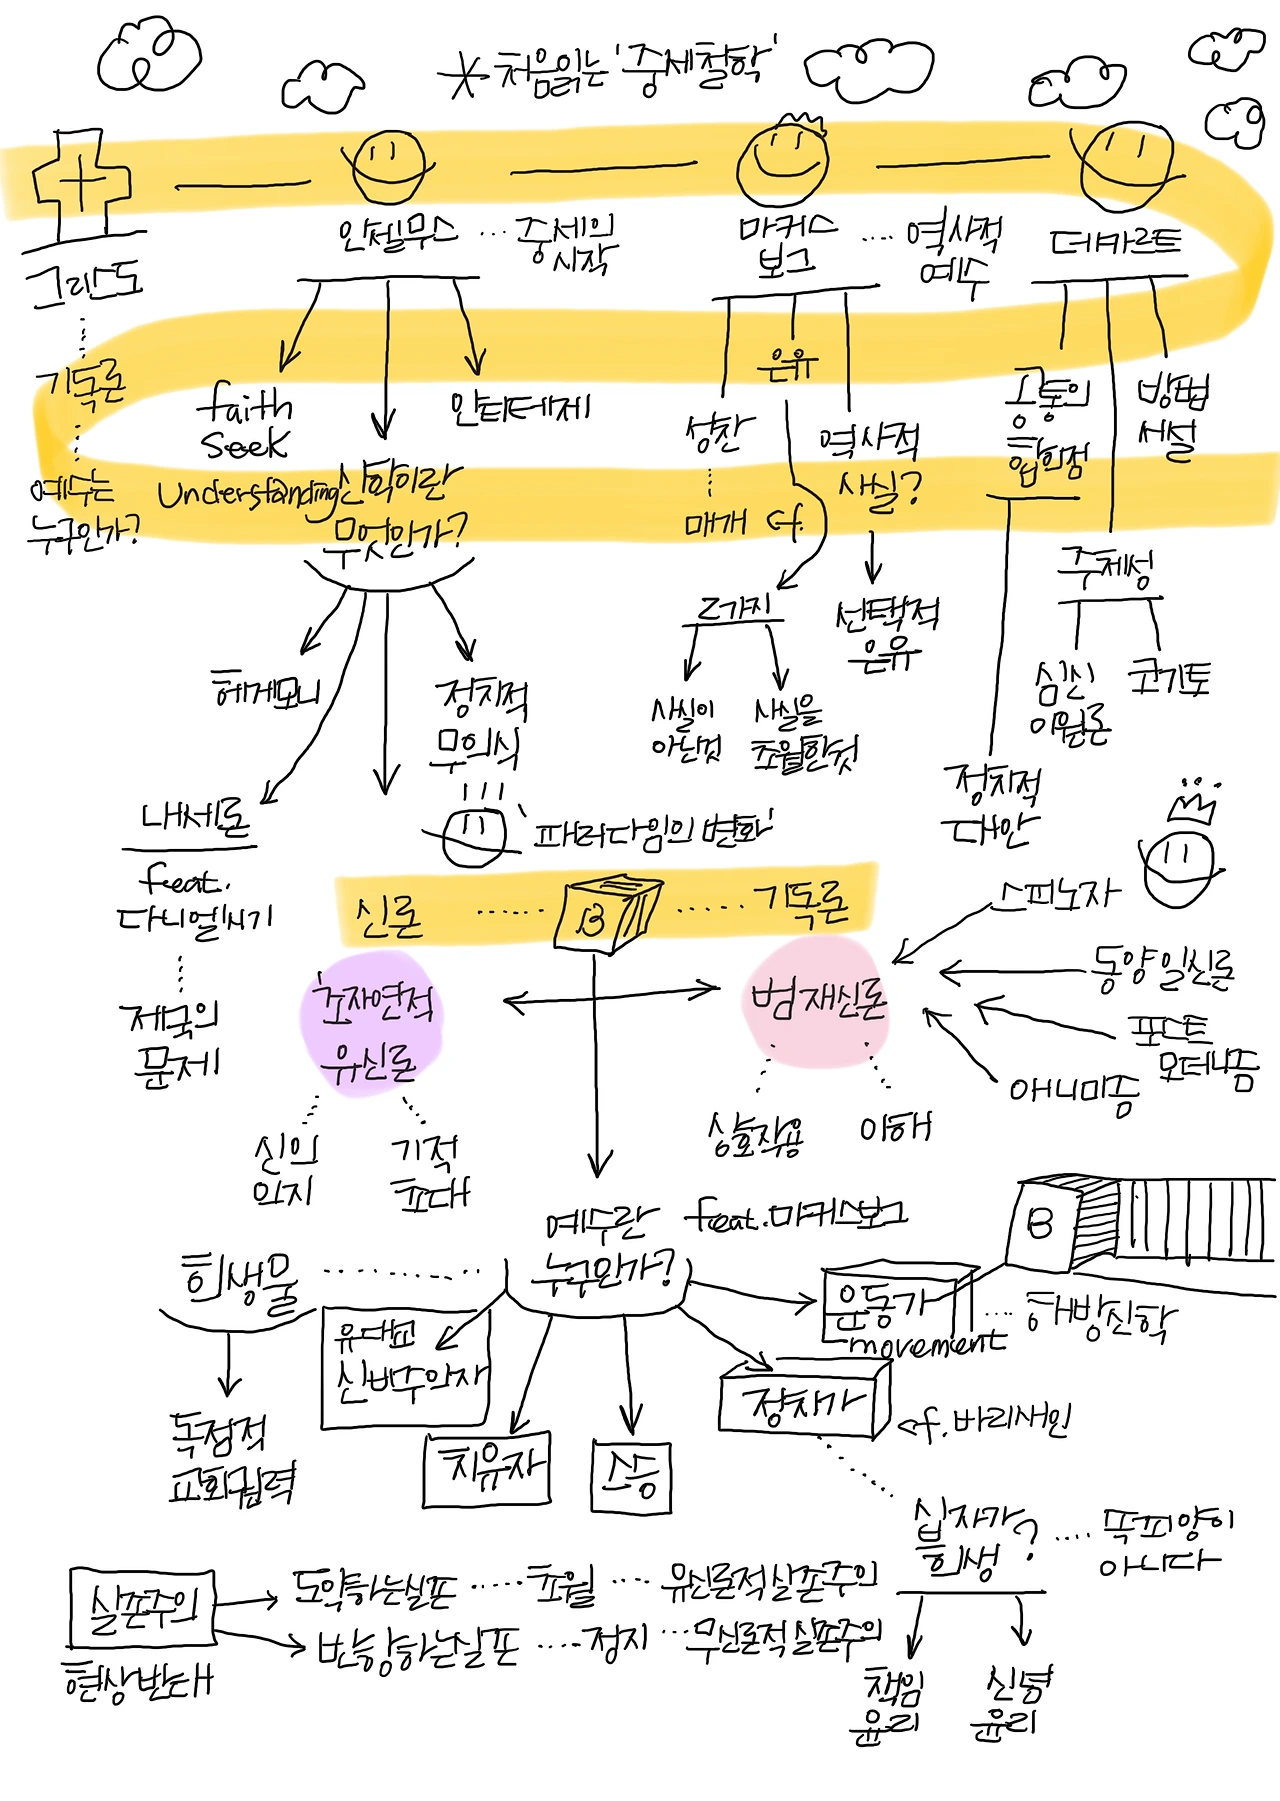 * 처음읽는 '중세철학'
그리스도
기독론
예수는
누구인가?
안셀무스 ... 중세의
시작
faith
seek
Understanding
신학이란
무엇인가?
안티테제
마커스
보그
... 역사적
예수
성찬
매개
은유
cf.
역사적
사실?
2가지
사실이
아닌것
사실을
초월한것
선택적
은유
데카르트
공통의
합의점
방법
서설
주체성
심신
이원론
코기토
정치적
대안
헤게모니
정치적
무의식
내세론
feat.
다니엘서기
제국의
문제
'패러다임의 변화'
신론 ...... B ...... 기독론
초자연적
유신론
신의
의지
기적
초대
범재신론
상호작용
이해
스피노자
동양 일신론
포스트
모더니즘
애니미즘
예수란
누구인가?
feat.마커스보그
희생물
독점적
교회권력
유대교
신비주의자
치유자
스승
정치가
cf.바리새인
운동가
movement
... 해방신학
B
십자가
희생
? .... 똑피양이
아니다
책임
윤리
신념
윤리
실존주의
현상반대
도약하는실존 ..... 초월 .... 유신론적실존주의
반항하는실존 .... 정지 ... 무신론적실존주의